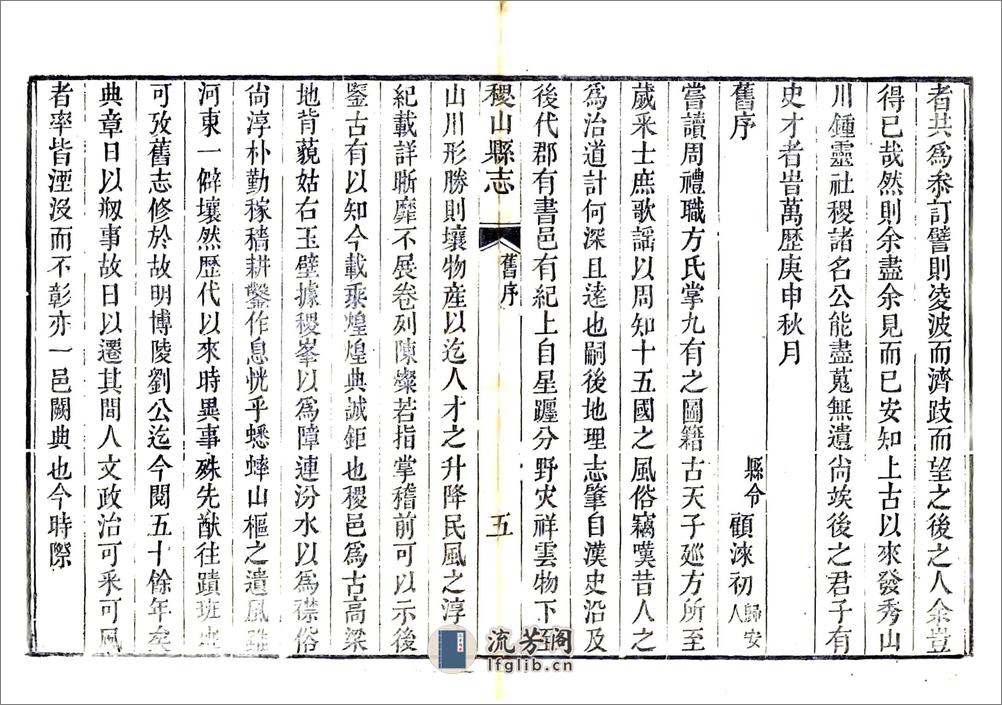 者共爲叅訂譬則凌波而濟跂而望之後之人余豈
得已哉然則余盡余見而已安知上古以來發秀山
川鍾靈社稷諸名公能盡蒐無遺尙竢後之君子有
史才者旹萬歷庚申秋月
舊序
縣令顧涞初歸安人
嘗讀周禮職方氏掌九有之圖籍古天子廵方所至
歲采士庶歌謡以周知十五國之風俗竊嘆昔人之
爲治道計何深且逺也嗣後地理志肇自漢史沿及
後代郡有書邑有紀上自星躔分野灾祥雲物下
稷山縣志
舊序
五
山川形勝則壤物産以迄人才之升降民風之淳
紀載詳晣靡不展卷列陳燦若指掌稽前可以示後
鑒古有以知今載乘煌煌典誠鉅也稷邑爲古高梁
地背藐姑右玉壁據稷峯以爲障連汾水以爲襟俗
尙淳朴勤稼穡耕鑿作息恍乎蟋蟀山樞之遺風雖
河東一僻壤然歴代以來時異事殊先猷往蹟班班
可攷舊志修於故明博陵劉公迄今閱五十餘年矣
典章日以剏事故日以遷其間人文政治可釆可風
者率皆湮没而不彰亦一邑闕典也今時際
流芳阁
lfglib.cn